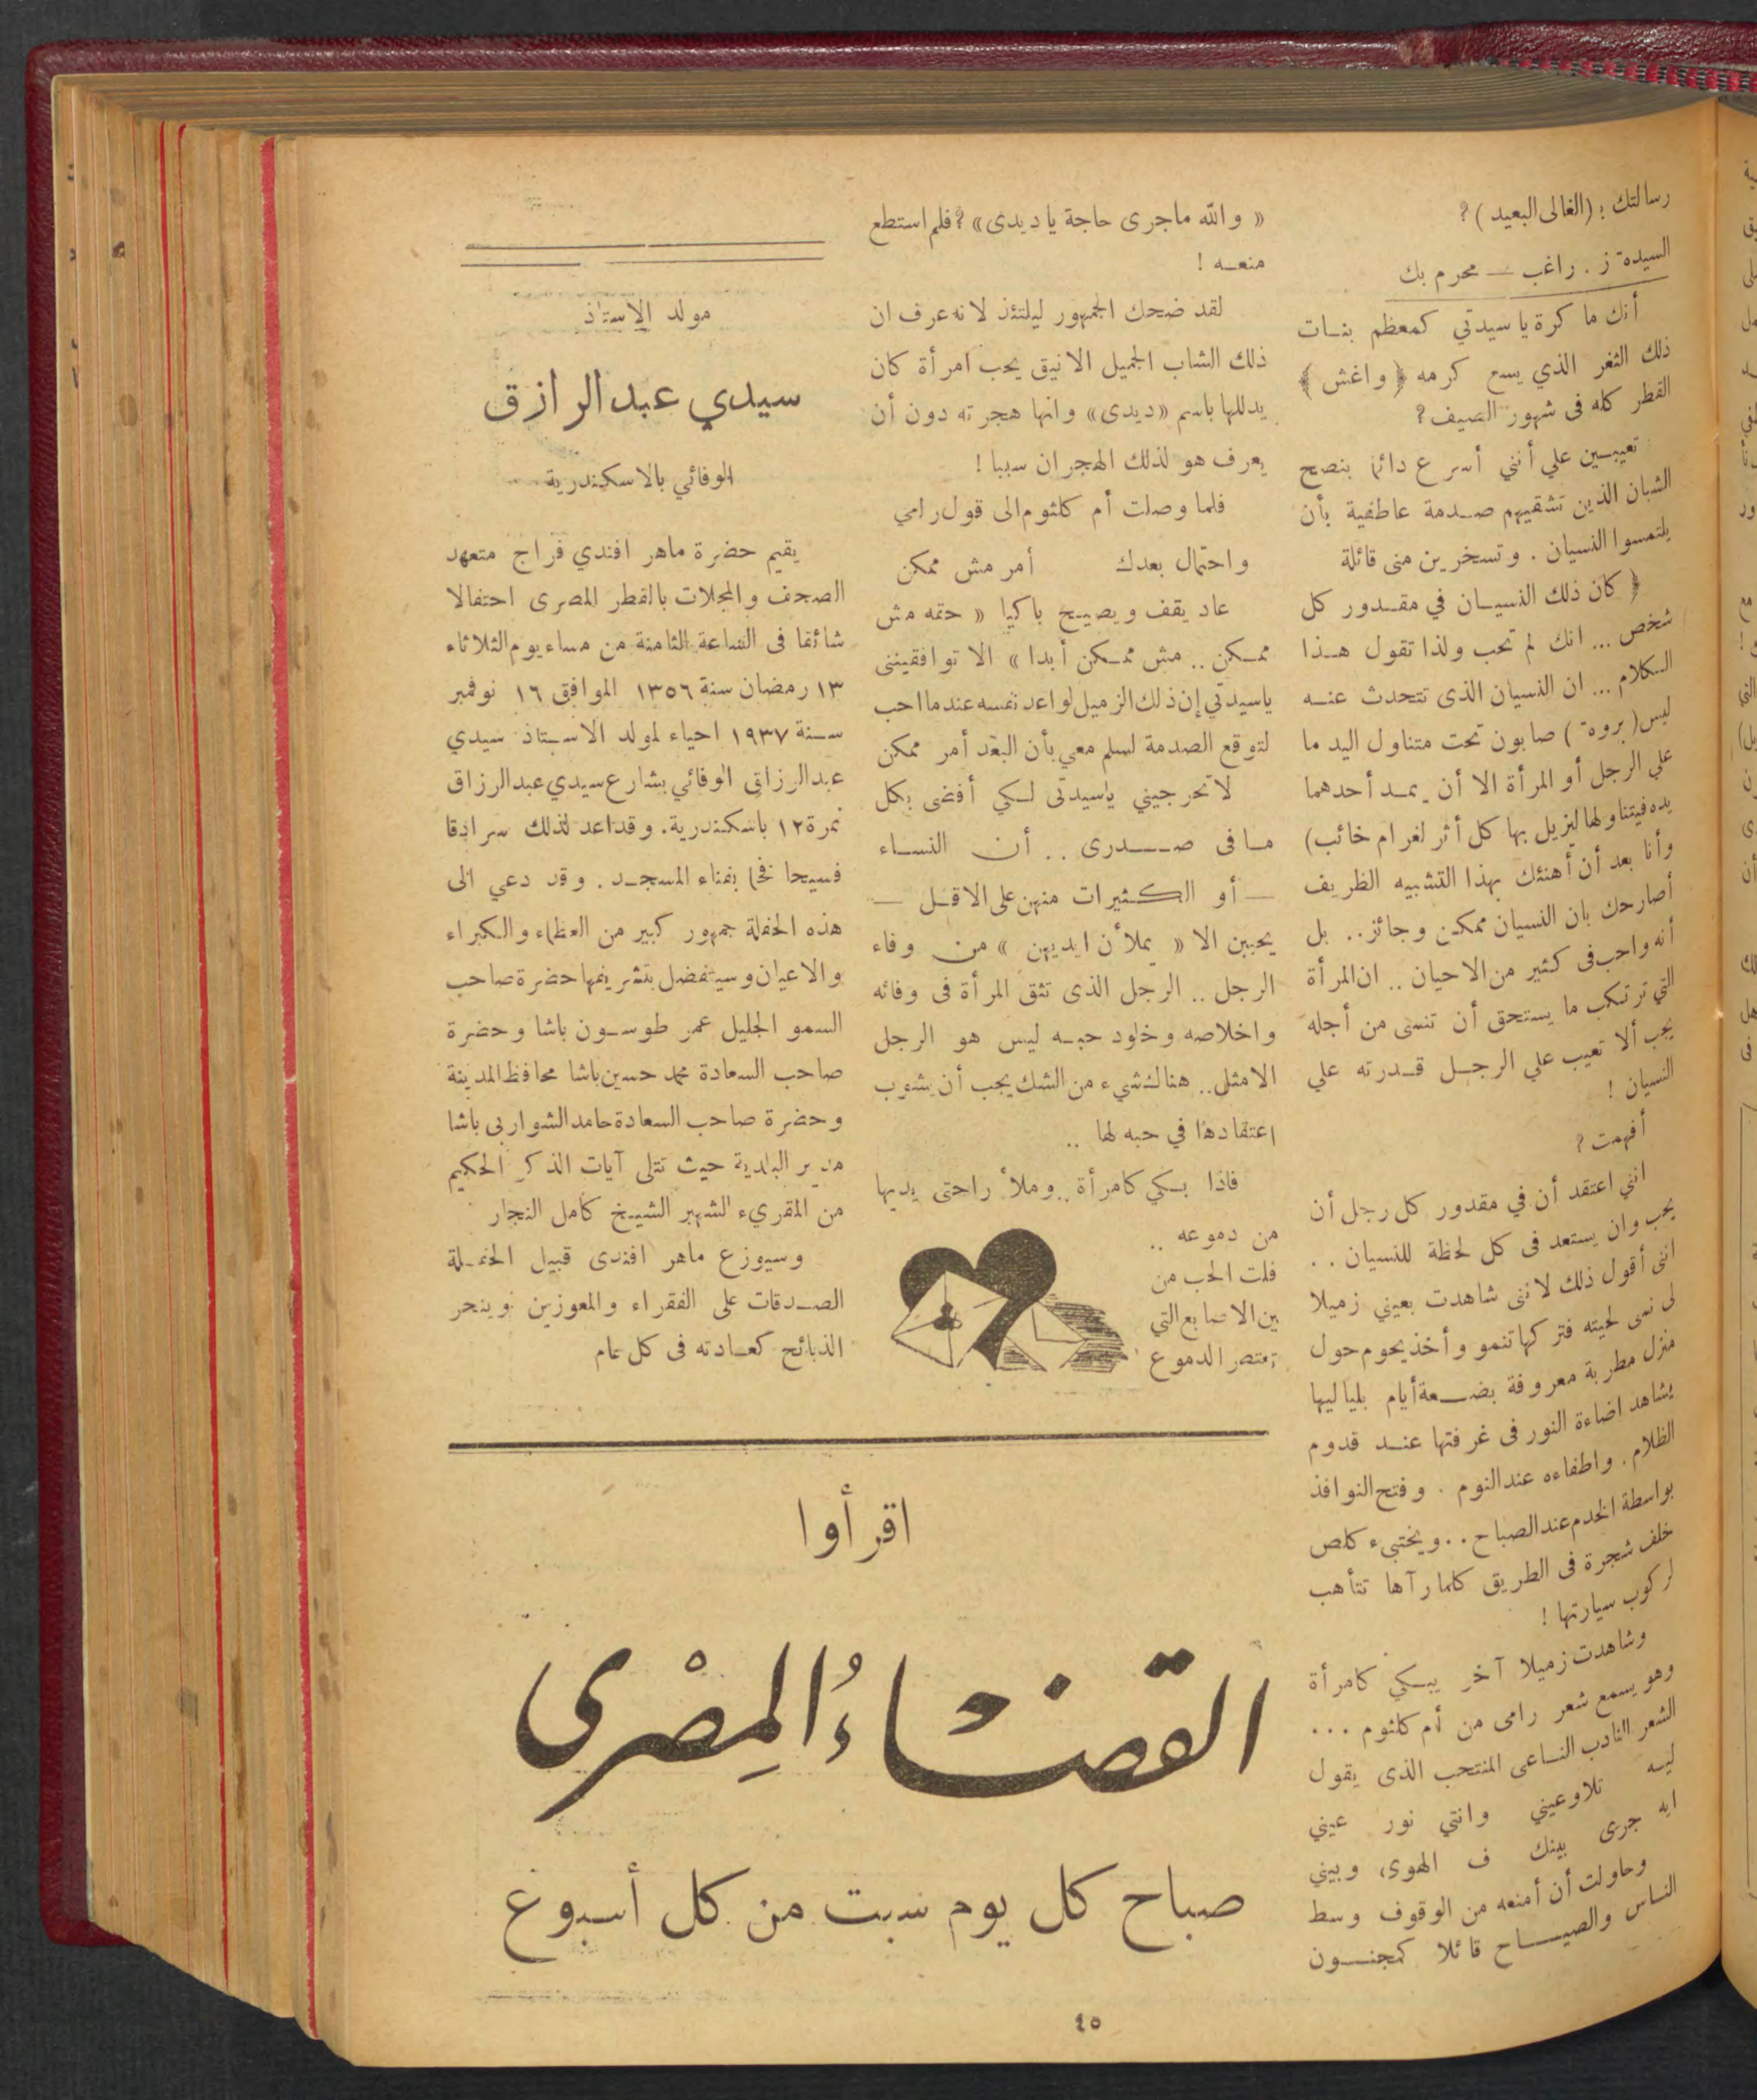 رسالتك : (الغالى البعيد) ؟
السيدة ز . راغب — محرم بك
أنك ماكرة يا سيدتي كمعظم بنات
ذلك الثغر الذي يسع كرمه ﴿ واغش ﴾
القطر كله فى شهور الصيف ؟
تعيبين علي أنني أسرع دائما بنصح
الشبان الذين تشقيهم صدمة عاطفية بأن
يلتمسوا النسيان . وتسخرين منى قائلة
﴿ كان ذلك النسيان في مقدور كل
شخص ... انك لم تحب ولذا تقول هذا
الكلام ... ان النسيان الذى تتحدث عنه
ليس ( بروة ) صابون تحت متناول اليد ما
على الرجل أو المرأة الا أن يمد أحدهما
يده فيتناولها ليزيل بها كل أثر لغرام خائب)
وأنا بعد أن أهنئك بهذا التشبيه الظريف
أصارحك بان النسيان ممكن وجائز .. بل
أنه واجب فى كثير من الاحيان .. ان المرأة
التي ترتكب ما يستحق أن تنسى من أجله
يجب ألا تعيب علي الرجل قدرته علي
النسيان !
أفهمت ؟
انني اعتقد أن في مقدور كل رجل أن
يحب وان يستعد فى كل لحظة للنسيان . .
انى أقول ذلك لاننى شاهدت بعيني زميلا
لى نسى لحيته فتركها تنمو وأخذ يحوم حول
منزل مطربة معروفة بضعة أيام بلياليها
يشاهد اضاءة النور فى غرفتها عند قدوم
الظلام . واطفاءه عند النوم . وفتح النوافذ
بواسطة الخدم عند الصباح . . ويختبىء كلص
خلف شجرة فى الطريق كلما رآها تتأهب
لركوب سيارتها !
وشاهدت زميلا آخر يبكي كامرأة
وهو يسمع شعر رامى من أم كلثوم ...
الشعر النادب الناعى المنتحب الذى يقول
ليه تلاوعيني وانتي نور عيني
ايه جرى بينك ف الهوى وبيني
وحاولت أن أمنعه من الوقوف وسط
الناس والصياح قائلا كمجنون
« والله ماجرى حاجة يا ديدى » ؟ فلم استطع
منعه !
لقد ضحك الجمهور ليلتئذ لانه عرف ان
ذلك الشاب الجميل الانيق يحب امرأة كان
يدللها باسم « ديدى » وانها هجرته دون أن
يعرف هو لذلك الهجران سببا !
فلما وصلت أم كلثوم الى قول رامي
واحتمال بعدك أمر مش ممكن
عاد يقف ويصيح باكيا « حقه مش
ممكن .. مش ممكن أبدا » الا توافقينني
ياسيدتي إن ذلك الزميل لو اعد نفسه عندما احب
لتوقع الصدمة لسلم معي بأن البعد أمر ممكن
لاتحرجيني ياسيدتى لكي أفضى بكل
مافى صدرى .. أن النساء
— أو الكثيرات منهن على الاقل —
يحببن الا « يملأن ايديهن » من وفاء
الرجل .. الرجل الذى تثق المرأة فى وفائه
واخلاصه وخلود حبه ليس هو الرجل
الامثل .. هناك شيء من الشك يجب أن يشوب
اعتقادها في حبه لها ..
فاذا بكي كامرأة .. وملأ راحتى يديها
من دموعه ..
فلت الحب من
بين الاصابع التي
تعتصر الدموع
مولد الاستاذ
سيدي عبدالرازق
الوفائي بالاسكندرية
يقيم حضرة ماهر افندي فراج متعهد
الصحف والمجلات بالقطر المصرى احتفالا
شائقا فى الساعة الثامنة من مساء يوم الثلاثاء
١٣ رمضان سنة ١٣٥٦ الموافق ١٦ نوفمبر
سنة ١٩٣٧ احياء لمولد الاستاذ سيدي
عبدالرزاق الوفائي بشارع سيدي عبدالرزاق
نمرة ١٢ باسكندرية . وقد اعد لذلك سرادقا
فسيحا فخما بفناء المسجد . وقد دعي الى
هذه الحفلة جمهور كبير من العظماء والكبراء
والاعيان وسيتفضل بتشريفها حضرة صاحب
السمو الجليل عمر طوسون باشا وحضرة
صاحب السعادة محمد حسين باشا محافظ المدينة
وحضرة صاحب السعادة حامد الشواربى باشا
مدير البلدية حيث تتلى آيات الذكر الحكيم
من المقريء الشهير الشيخ كامل النجار
وسيوزع ماهر افندى قبيل الحفلة
الصدقات على الفقراء والمعوزين وينحر
الذبائح كعادته فى كل عام
اقرأوا
القضاءُ المِصْرى
صباح كل يوم سبت من كل أسبوع
٤٥